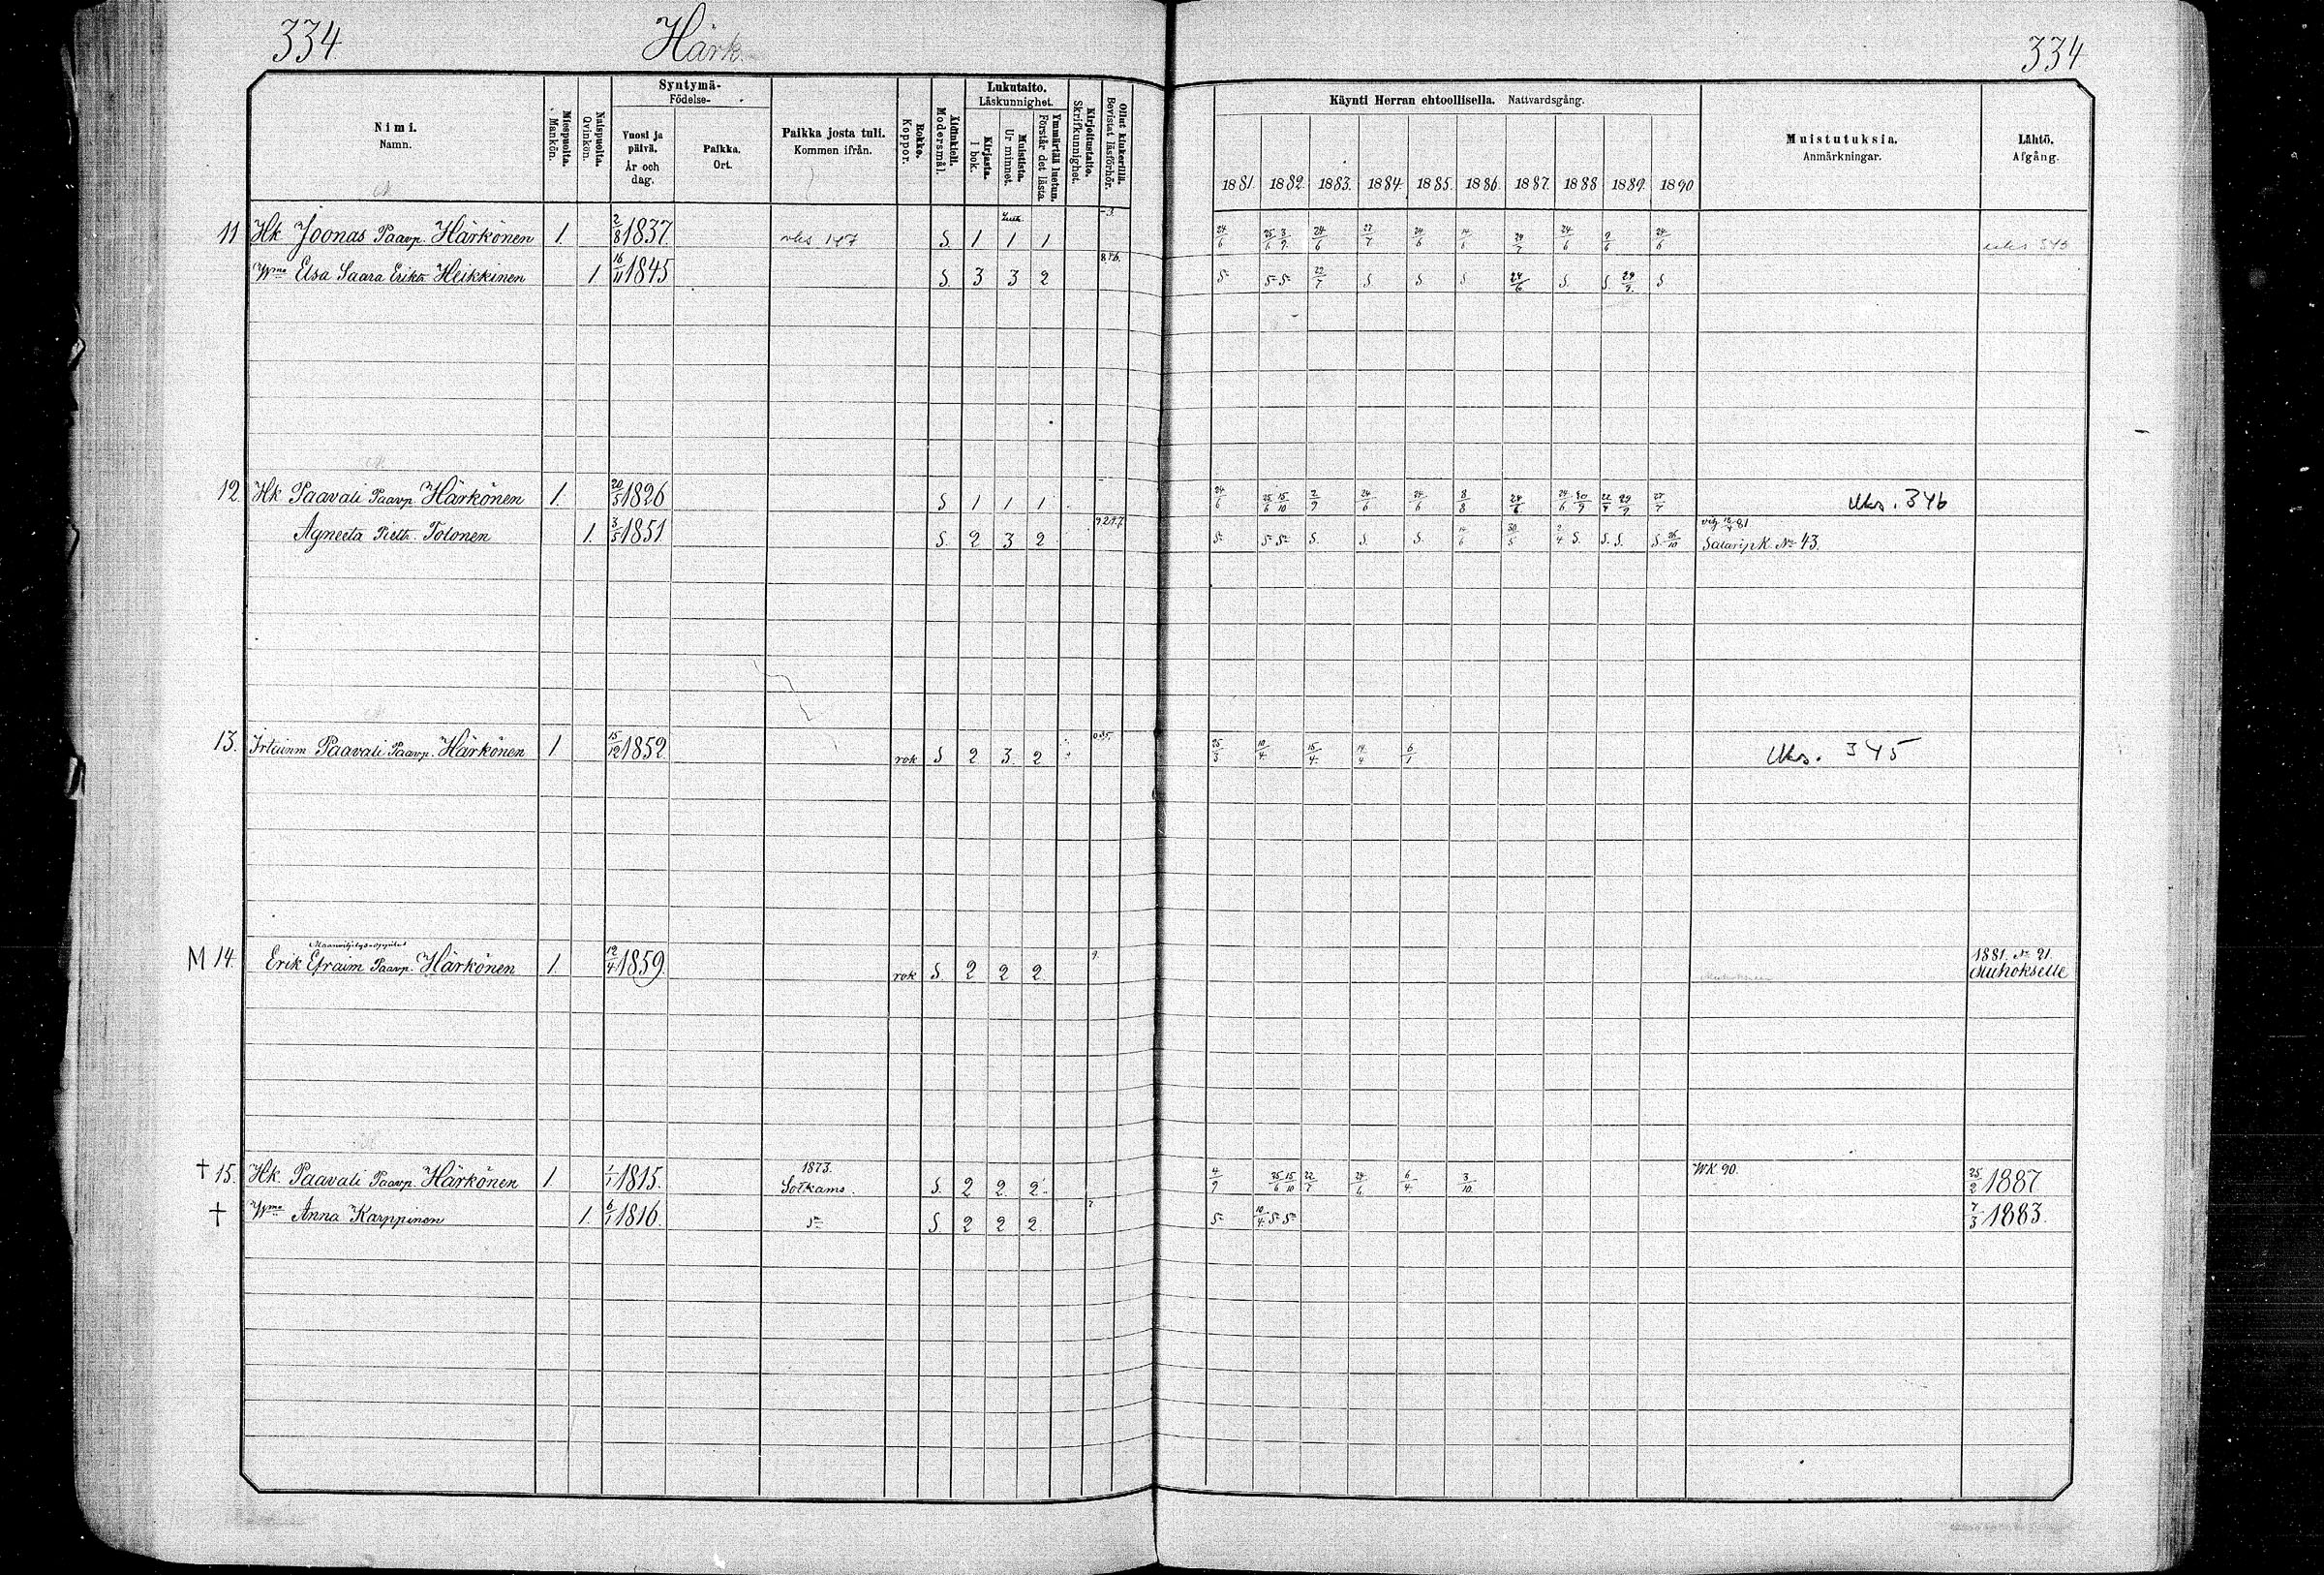 334
Härk.
334
Nimi.
Namn.
Miespuolta.
Mankön.
Naispuolta.
Qvinkön.
Syntymä-
Födelse-
Vuosi ja päivä.
År och dag.
Paikka.
Ort.
Paikka josta tuli.
Kommen ifrån.
Rokko.
Koppor.
Äidinkieli.
Modersmål.
Lukutaito.
Läskunnighet.
Kirjasta.
I bok.
Muistista.
Ur minnet.
Ymmärtää luetun.
Förstår det lästa
Kirjoitustaito.
Skrifkunnighet.
Ollut kinkerillä.
Bevistat läsförhör.
Käynti Herran ehtoollisella. Nattvardsgång.
1881. 1882. 1883. 1884. 1885. 1886. 1887. 1888 1889. 1890
Muistutuksia.
Anmärkningar.
Lähtö.
Afgång.
11 Hk Joonas Paavp. Härkönen 1. 2/8 1837. 147 S. 1 1 1 24/6 25/6 3/9. 24/6 22/7 24/6 14/6 24/7 24/6 9/6 24/6
Wmo Elsa Saara Erikt. Heikkinen 1 16/11 1845 S. 3 3 2 S S S 22/7 S S S 24/6 S. S. 29/9. S
12. Hk Paavali Paavp. Härkönen 1. 20/5 1826 S 1 1 1 24/6 25/6 15/10 2/9 24/6 24/6 8/8 24/6 24/6 30/9 22/7 29/9 27/7 Uks. 346
Agneeta Piett. Tolonen 1. 3/5 1851 S. 2 3 2 S S S S. S. S. 14/6 30/5 2/4 S. S. S. S. 26/10 vig 18/4 81
Salarip.K. No 43.
13. Irtainm Paavali Paavp. Härkönen 1 15/12 1852. rok S 2 3 2 25/3 10/4 15/4 14/4 6/1 Uks. 345
M 14. Erik Efraim Paavp. Härkönen 1. 12/4 1859. rok S. 2 2 2 1881. No 21.
Muhokselle
† 15. Hk. Paavali Paavp. Härkönen 1 1/1 1815. 1873.
Sotkamo. S. 2 2. 2. 4/9 25/6 15/10 22/7 24/6 6/4 3/10 WK 90. 25/2 1887
† Wmo Anna Karppinen 1. 6/1 1816. S S 2 2 2 S 10/4 S S 7/3 1883.